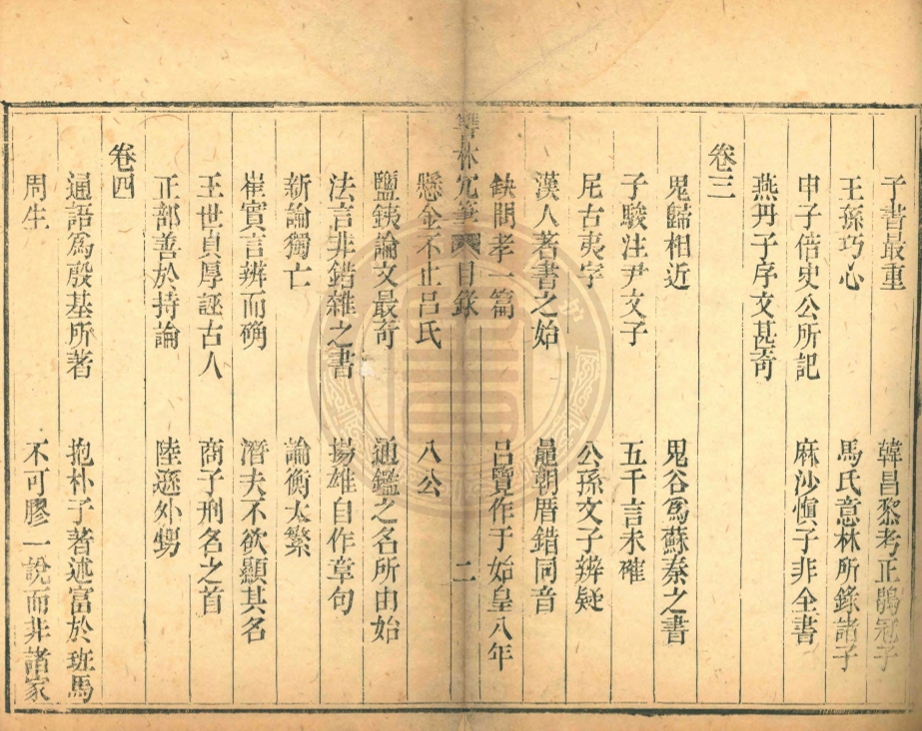 子書最重　韓昌黎考正鶡冠子
王孫巧心　馬氏意林所錄諸子
申子倍史公所記　麻沙愼子非全書
燕丹子序文甚奇
卷三
鬼歸相近　鬼谷爲蘇秦之書
子駿注尹文子　五千言未確
𡰥古夷字　公孫文子辨疑
漢人著書之始　鼂朝厝錯同音
缺問孝一篇　呂覽作于始皇八年
讐林冗筆　目錄　二
懸金不止呂氏　八公
鹽鐵論文最奇　通鑑之名所由始
法言非錯雜之書　揚雄自作章句
新論獨亡　論衡太繁
崔寔言辨而确　潛夫不欲顯其名
王世貞厚誣古人　商子刑名之首
正部善於持論　陸遜外甥
卷四
通語爲殷基所著　抱朴子著述富於班馬
周生　不可膠一說而非諸家